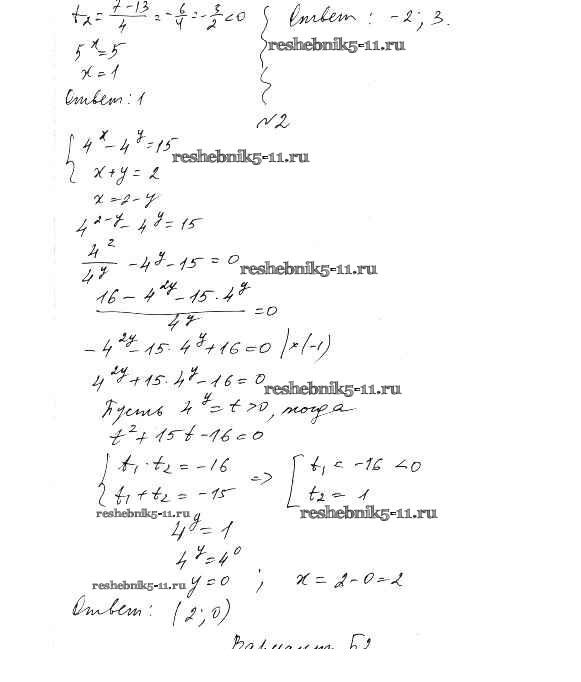 t₂ = (7-13)/4 = -6/4 = -3/2 < 0
5ˣ = 5
x = 1
Ответ: 1
Ответ: -2; 3.
reshebnik5-11.ru
№2
{ 4ˣ - 4ʸ = 15
reshebnik5-11.ru
x + y = 2
x = 2 - y
4²⁻ʸ - 4ʸ = 15
4²/4ʸ - 4ʸ - 15 = 0
reshebnik5-11.ru
(16 - 4²ʸ - 15·4ʸ)/4ʸ = 0
-4²ʸ - 15·4ʸ + 16 = 0 |×(-1)
4²ʸ + 15·4ʸ - 16 = 0
reshebnik5-11.ru
Пусть 4ʸ = t > 0, тогда
t² + 15t - 16 = 0
{ t₁·t₂ = -16 => [ t₁ = -16 < 0
t₁ + t₂ = -15 t₂ = 1
reshebnik5-11.ru reshebnik5-11.ru
4ʸ = 1
4ʸ = 4⁰
reshebnik5-11.ru y = 0 ; x = 2 - 0 = 2
Ответ: (2; 0)
Вариант Б2